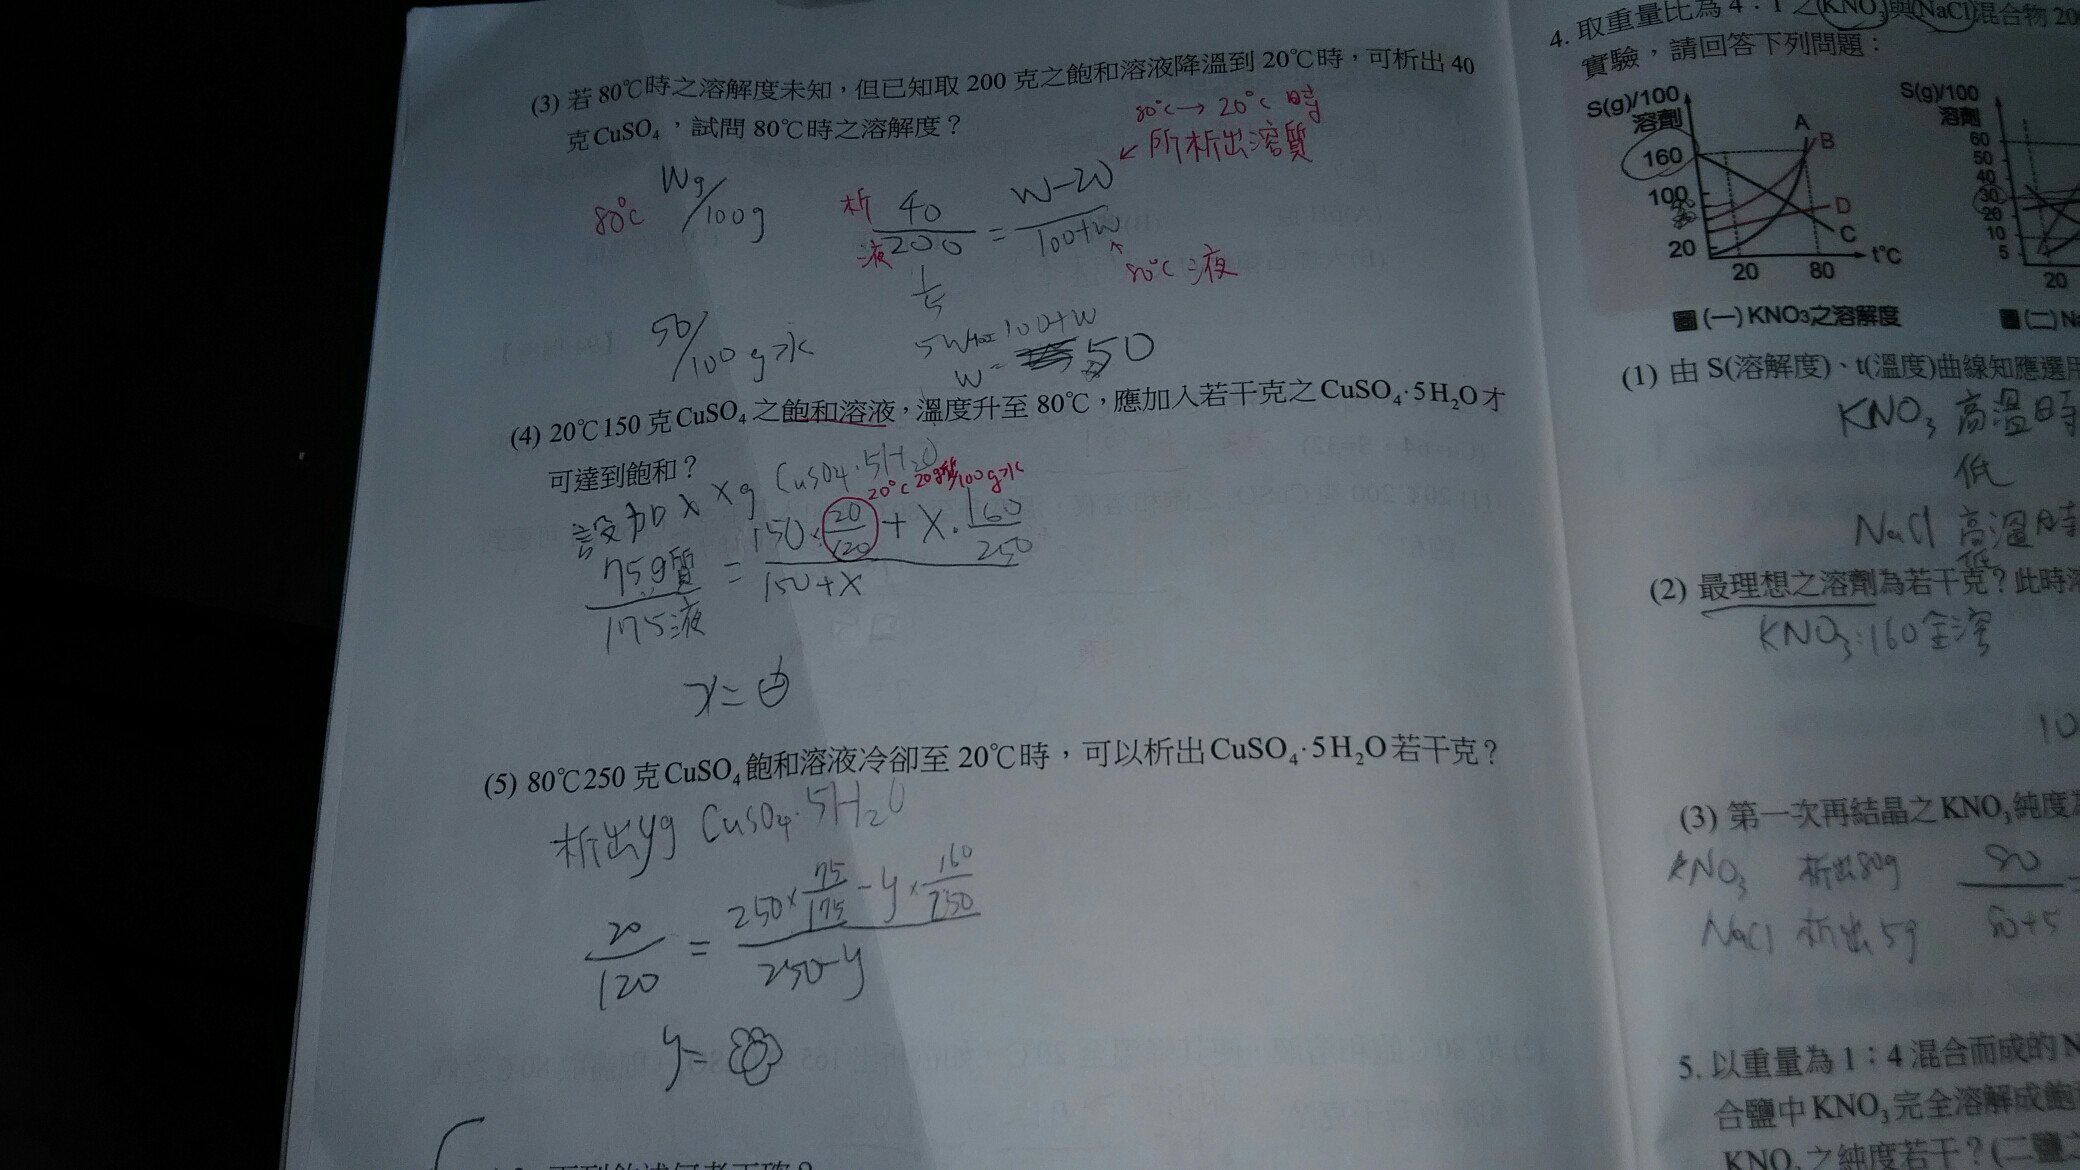 (3) 若80℃時之溶解度未知，但已知取 200 克之飽和溶液降溫到 20℃時，可析出 40
克CuSO₄，試問 80℃時之溶解度？
80℃→20℃ 時
所析出溶質
80℃ Wg/100g
析 40 / 液 200 = W-20 / 100+W
80℃ 液
1/5
50/100g水
W = 50
(4) 20℃150 克CuSO₄之飽和溶液，溫度升至 80℃，應加入若干克之CuSO₄·5H₂O才
可達到飽和？
設加入 xg CuSO₄·5H₂O
20℃ 20g質/100g水
75g質/175液 = 150×20/120 + x·160/250 / 150+x
x=
(5) 80℃250 克CuSO₄飽和溶液冷卻至 20℃時，可以析出CuSO₄·5H₂O若干克？
析出yg CuSO₄·5H₂O
20/120 = 250×75/175 - y×160/250 / 250-y
y=
4. 取重量比為 4：1 之KNO₃與NaCl混合物 20
實驗，請回答下列問題：
S(g)/100
溶劑
160
100
20
A
B
D
C
20
80
t℃
圖(一)KNO₃之溶解度
S(g)/100
溶劑
60
50
40
30
20
10
5
20
圖(二)Na
(1) 由 S(溶解度)、t(溫度)曲線知應選用
KNO₃ 高溫時
低
NaCl 高溫時
低
(2) 最理想之溶劑為若干克？此時溶
KNO₃:160全溶
10
(3) 第一次再結晶之KNO₃純度為
KNO₃ 析出80g 80/80+5 =
NaCl 析出5g
5. 以重量為 1：4 混合而成的N
合鹽中KNO₃完全溶解成飽
KNO₃之純度若干？(二鹽之
下列敘述何者正確？